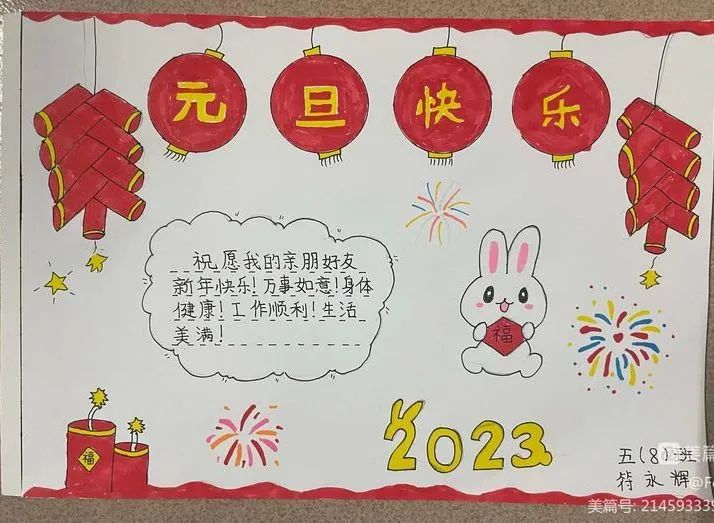 元旦快乐
祝愿我的亲朋好友
新年快乐!万事如意!身体
健康!工作顺利!生活
美满!
福
福
2023
五(8)班
符永辉
美篇
美篇号: 21459333